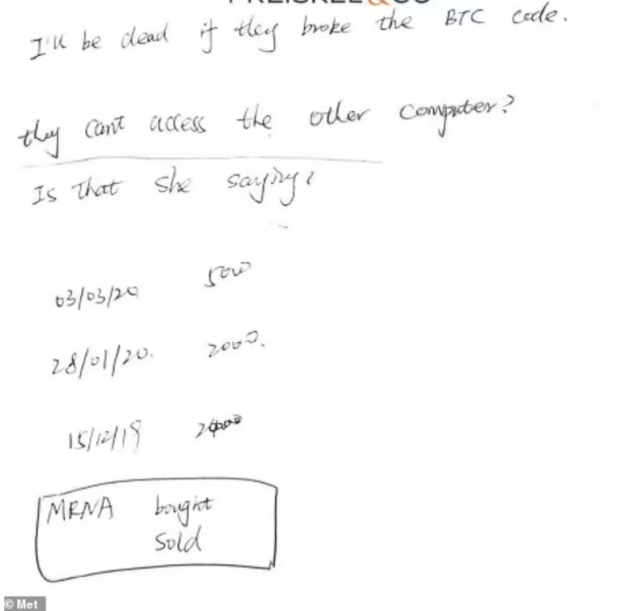 I'll be dead if they broke the BTC code.
they can't access the other computer?
Is that she saying?
03/03/20 5000
28/01/20. 2000.
15/12/19
MRNA bought
sold
© Met